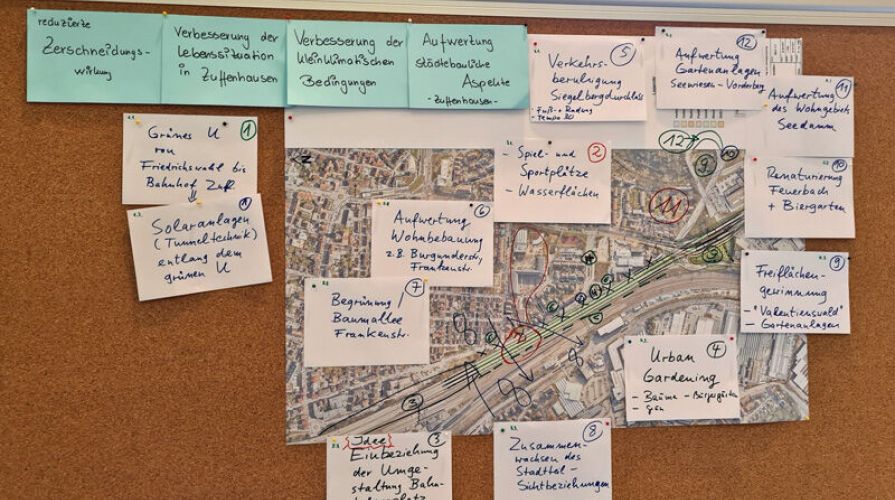 reduzierte
Zerschneidungs-
wirkung
Verbesserung der
Lebenssituation
in Zuffenhausen
Verbesserung der
kleinklimatischen
Bedingungen
Aufwertung
städtebauliche
Aspekte
- Zuffenhausen -
5
Verkehrs-
beruhigung
Siegelbergdurchlass
- Fuß- + Radweg
- Tempo 30
12
Aufwertung
Gartenanlagen
Seewiesen - Vorderberg
11
Aufwertung
des Wohngebiets
Seedamm
1
Grünes U
von
Friedrichswahl bis
Bahnhof Zuff.
Solaranlagen
(Tunneltechnik)
entlang dem
grünen U
2
- Spiel- und
Sportplätze
- Wasserflächen
12
9
10
11
10
Renaturierung
Feuerbach
+ Biergarten
6
Aufwertung
Wohnbebauung
z.B. Burgunderstr,
Frankenstr.
7
Begrünung /
Baumallee
Frankenstr.
9
Freiflächen-
gewinnung
- "Valentienswald"
- Gartenanlagen
4
Urban
Gardening
- Bäume - Bürgergärten
8
8
3
3
{Idee}
Einbeziehung
der Umge-
staltung Bahn-
8
Zusammen-
wachsen des
Stadtteil -
Sichtbeziehungen